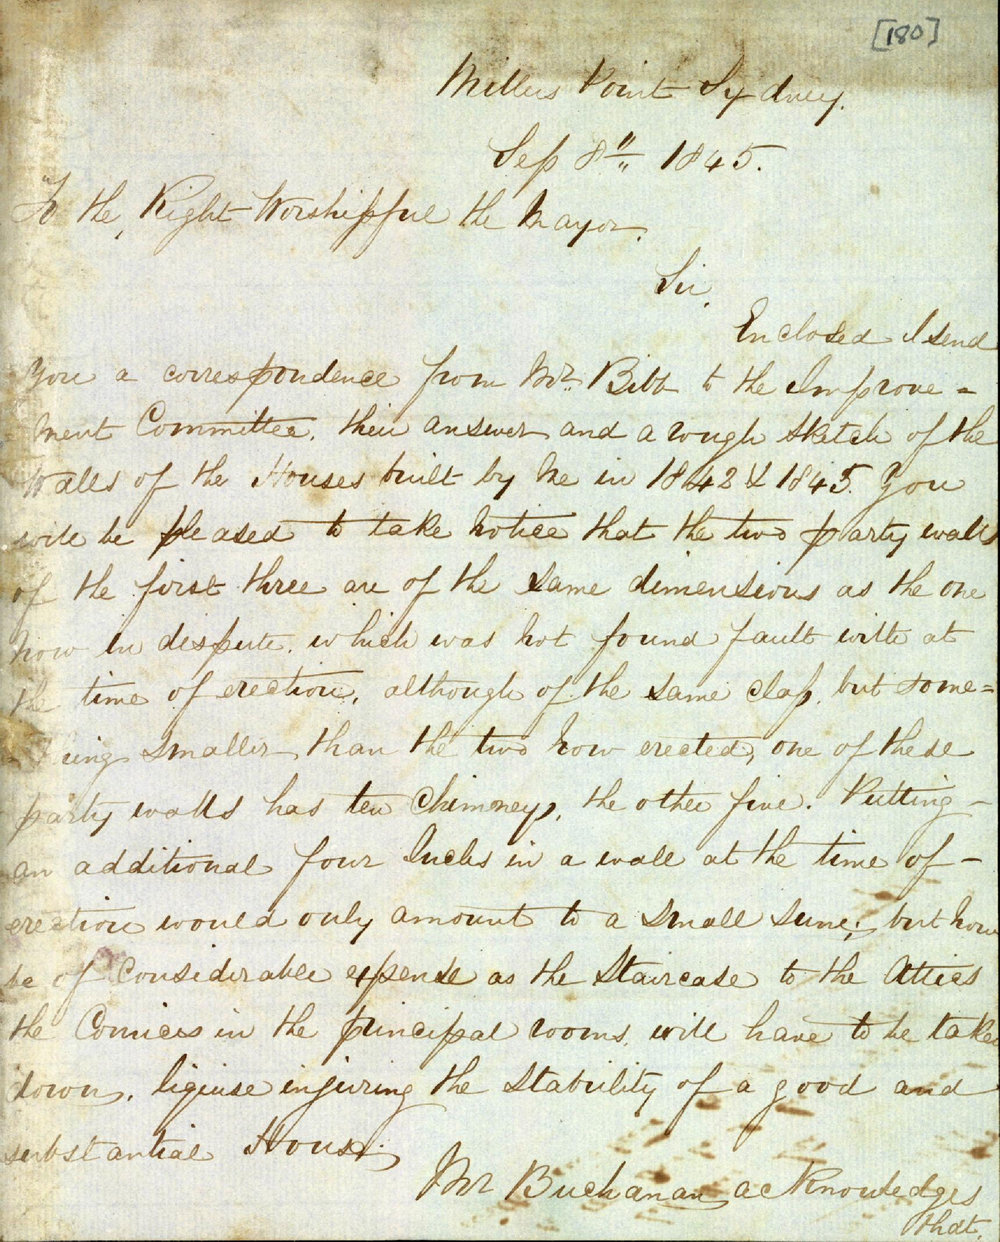 [180]
Millers Point Sydney.
Sep 8th 1845.
To the Right Worshipful the Mayor.
Sir,
Enclosed I send
You a correspondence from Mr. Bibb to the Improve =
ment Committee, their answer and a rough sketch of the
Walls of the Houses built by Me in 1842 & 1845. You
will be pleased to take notice that the two party walls
of the first three are of the same dimensions as the one
now in dispute, which was not found fault with at
the time of erection, although of the same class, but some=
thing smaller than the two now erected, one of these
party walls has ten Chimneys, the other five. Putting -
an additional four Inches in a wall at the time of -
erection would only amount to a small sum; but now
be of Considerable expense as the Staircase to the Attics
the Cornices in the principal rooms, will have to be taken
down, liquise injuring the Stability of a good and
substantial House.
Mr Buchanan acknowledges
that,